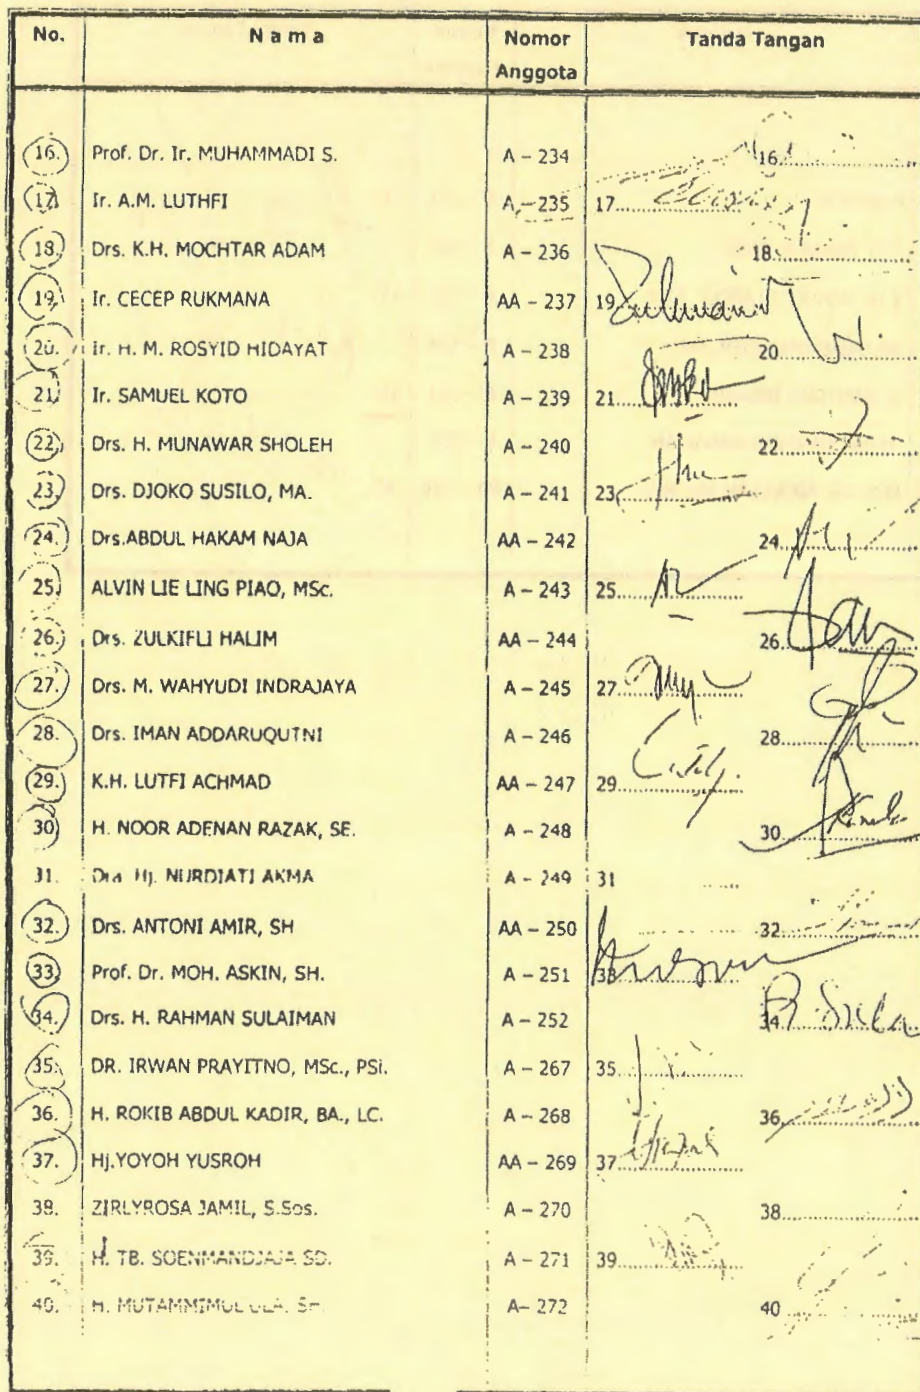 No. N a m a Nomor Anggota Tanda Tangan
16. Prof. Dr. Ir. MUHAMMADI S. A – 234 16.
17. Ir. A.M. LUTHFI A – 235 17
18. Drs. K.H. MOCHTAR ADAM A – 236 18.
19. Ir. CECEP RUKMANA AA – 237 19
20. Ir. H. M. ROSYID HIDAYAT A – 238 20
21. Ir. SAMUEL KOTO A – 239 21.
22. Drs. H. MUNAWAR SHOLEH A – 240 22
23. Drs. DJOKO SUSILO, MA. A – 241 23
24. Drs.ABDUL HAKAM NAJA AA – 242 24
25. ALVIN LIE LING PIAO, MSc. A – 243 25
26. Drs. ZULKIFLI HALIM AA – 244 26
27. Drs. M. WAHYUDI INDRAJAYA A – 245 27
28. Drs. IMAN ADDARUQUTNI A – 246 28
29. K.H. LUTFI ACHMAD AA – 247 29
30. H. NOOR ADENAN RAZAK, SE. A – 248 30
31. Dra Hj. NURDIATI AKMA A – 249 31
32. Drs. ANTONI AMIR, SH AA – 250 32
33. Prof. Dr. MOH. ASKIN, SH. A – 251 33
34. Drs. H. RAHMAN SULAIMAN A – 252 34
35. DR. IRWAN PRAYITNO, MSc., PSi. A – 267 35
36. H. ROKIB ABDUL KADIR, BA., LC. A – 268 36
37. Hj.YOYOH YUSROH AA – 269 37
38. ZIRLYROSA JAMIL, S.Sos. A – 270 38
39. H. TB. SOENMANDJAJA SD. A – 271 39
40. H. MUTAMMIMUL ULA, SH. A– 272 40